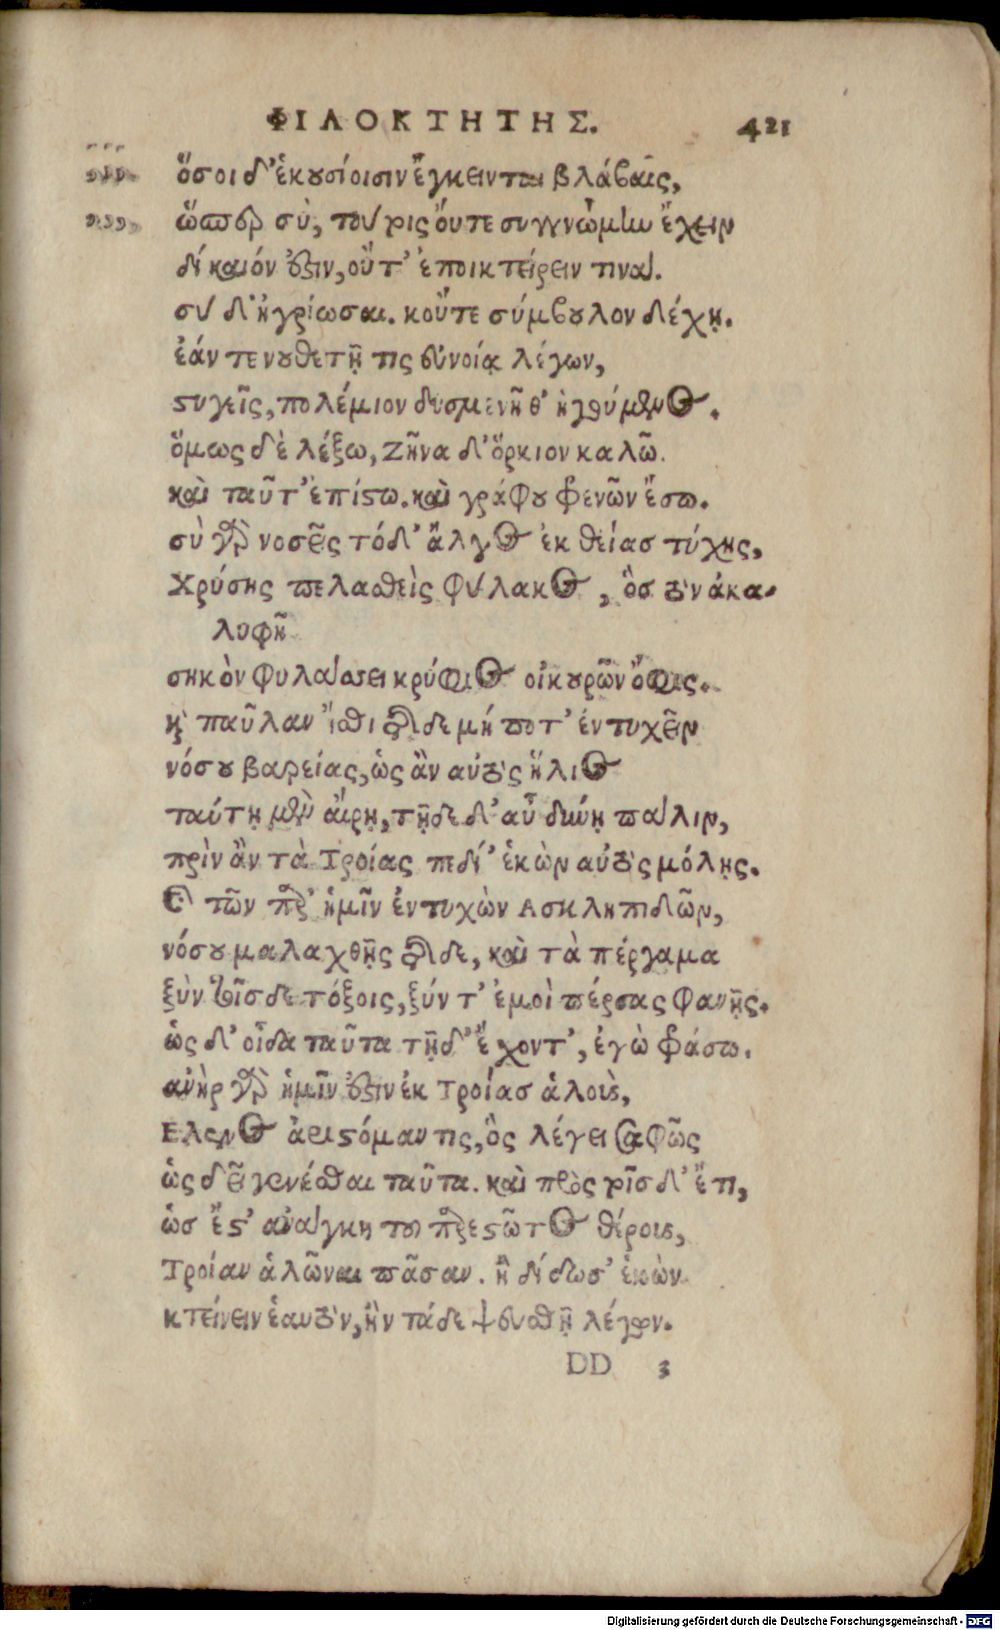 ΦΙΛΟΚΤΗΤΗΣ. 421
ὅσοι δ' ἑκουσίοισιν ἔγκεινται βλάβαις,
ὥσπερ σὺ, τούτοις οὔτε συγγνώμην ἔχειν
δίκαιόν ἐστιν, οὔτ' ἐποικτείρειν τινά.
σὺ δ' ἠγρίωσαι. κοὔτε σύμβουλον δέχῃ.
ἐάν τε νουθετῇ τις εὐνοίᾳ λέγων,
στυγεῖς, πολέμιον δυσμενῆ θ' ἡγούμενος.
ὅμως δὲ λέξω, Ζῆνα δ' ὅρκιον καλῶ.
καὶ ταῦτ' ἐπίστω. καὶ γράφου φρενῶν ἔσω.
σὺ γὰρ νοσεῖς τόδ' ἄλγος ἐκ θείας τύχης,
Χρύσης πελασθεὶς φύλακος, ὃς τὸν ἀκα-
λυφῆ
σηκὸν φυλάσσει κρύφιος οἰκουρῶν ὄφις.
καὶ παῦλαν ἴσθι τῆσδε μή ποτ' ἐντυχεῖν
νόσου βαρείας, ὡς ἂν αὑτὸς ἥλιος
ταύτῃ μὲν αἴρῃ, τῇδε δ' αὖ δύνῃ πάλιν,
πρὶν ἂν τὰ Τροίας πεδί' ἑκὼν αὐτὸς μόλῃς.
καὶ τῶν παρ' ἡμῖν ἐντυχὼν Ασκληπιδῶν,
νόσου μαλαχθῇς τῆσδε, καὶ τὰ πέργαμα
ξὺν τοῖσδε τόξοις, ξύν τ' ἐμοὶ πέρσας φανῇς.
ὡς δ' οἶδα ταῦτα τῇδ' ἔχοντ', ἐγὼ φράσω.
ἀνὴρ γὰρ ἡμῖν ἐστιν ἐκ Τροίας ἁλοὺς,
Ελενος ἀριστόμαντις, ὃς λέγει σαφῶς
ὡς δεῖ γενέσθαι ταῦτα. καὶ πρὸς τοῖσδ' ἔτι,
ὡς ἔστ' ἀνάγκη τοῦ παρεστῶτος θέρους,
Τροίαν ἁλῶναι πᾶσαν. ἢ δίδωσ' ἑκὼν
κτείνειν ἑαυτὸν, ἢν τάδε ψευσθῇ λέγων.
DD 3
Digitalisierung gefördert durch die Deutsche Forschungsgemeinschaft - DFG